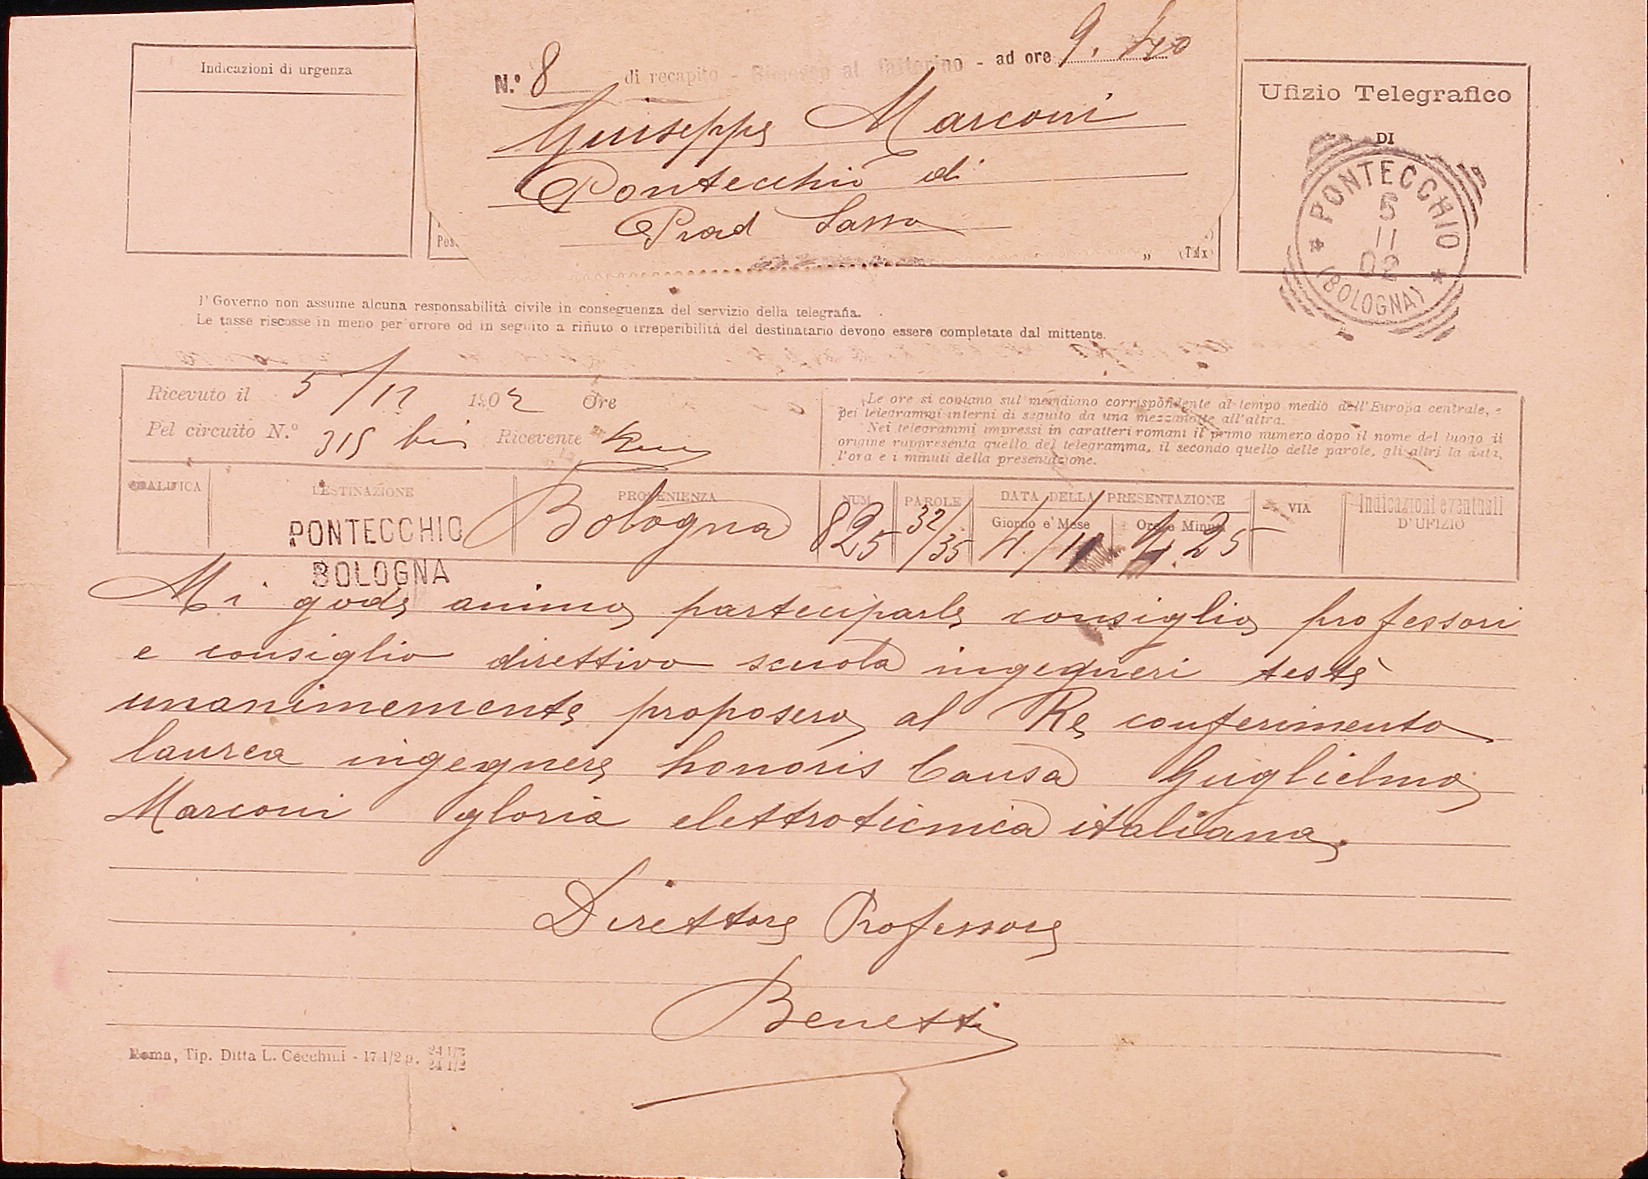 Indicazioni di urgenza
N.° 8 di recapito - Rimesso al fattorino - ad ore 9.40
Giuseppe Marconi
Pontecchio di
Prad Sasso
Ufizio Telegrafico
DI
PONTECCHIO
5
11
02
(BOLOGNA)
Il Governo non assume alcuna responsabilità civile in conseguenza del servizio della telegrafia.
Le tasse riscosse in meno per errore od in seguito a rifiuto o irreperibilità del destinatario devono essere completate dal mittente.
Ricevuto il 5/11 1902 Ore
Pel circuito N.° 315 bis Ricevente
Le ore si contano sul meridiano corrispondente al tempo medio dell'Europa centrale, e
pei telegrammi interni di seguito da una mezzanotte all'altra.
Nei telegrammi impressi in caratteri romani il primo numero dopo il nome del luogo di
origine rappresenta quello del telegramma, il secondo quello delle parole, gli altri la data,
l'ora e i minuti della presentazione.
QUALIFICA DESTINAZIONE PROVENIENZA NUM. PAROLE DATA DELLA PRESENTAZIONE VIA Indicazioni eventuali
Giorno e Mese Ore e Minuti D'UFIZIO
PONTECCHIO Bologna 825 32/35 4/11 4.25
BOLOGNA
Mi gode animo parteciparle consiglio professori
e consiglio direttivo scuola ingegneri testè
unanimemente proposero al Re conferimento
laurea ingegnere honoris Causa Guglielmo
Marconi gloria elettroticnica italiana.
Direttore Professore
Benetti
Roma, Tip. Ditta L. Cecchini - 17 1/2 p. 24 1/2
24 1/2